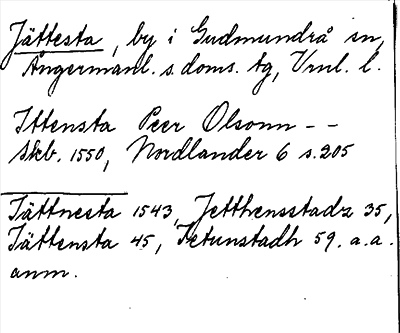 Jättesta, by i Gudmundrå sn,
Ångermanl. s. doms. tg, Vrnl. l.
Ittensta Peer Olsonn - -
Skb. 1550, Nordlander 6 s. 205
Jättnesta 1543, Jetthensstadz 35,
Jättensta 45, Jetunstadh 59. a.a.
anm.